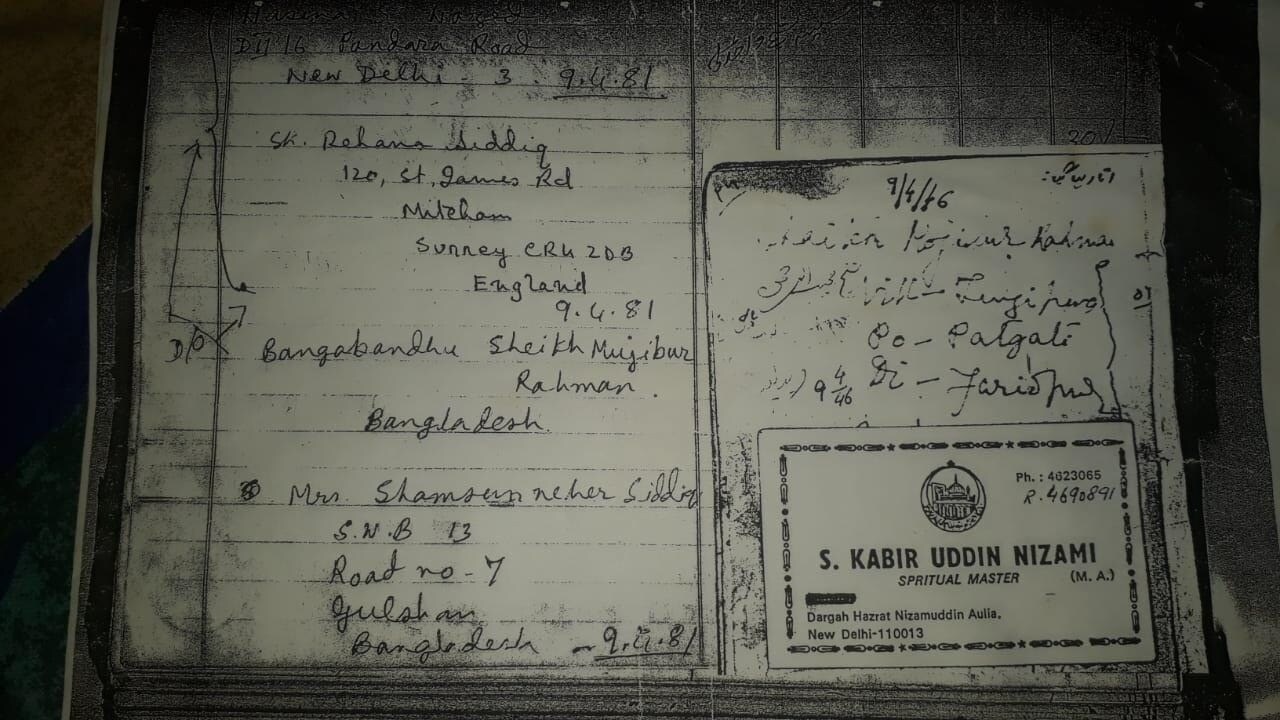 Hasina S. Wazid
DII 16 Pandara Road
New Delhi - 3. 9.4.81
Sk. Rehana Siddiq
120, St. James Rd
Mitcham
Surrey CR4 2DB
England
9.4.81
D/O
Bangabandhu Sheikh Mujibur
Rahman.
Bangladesh.
Mrs. Shamsun neher Siddiq
S.W.B 13
Road no - 7
Gulshan
Bangladesh - 9.4.81
20/-
9/4/46
Rahman
Vill - Tungipara
Po - Patgati
9 4/46 Di - Faridpur
Ph. : 4623065
R. 4690891
S. KABIR UDDIN NIZAMI
SPRITUAL MASTER (M. A.)
Dargah Hazrat Nizamuddin Aulia.
New Delhi-110013